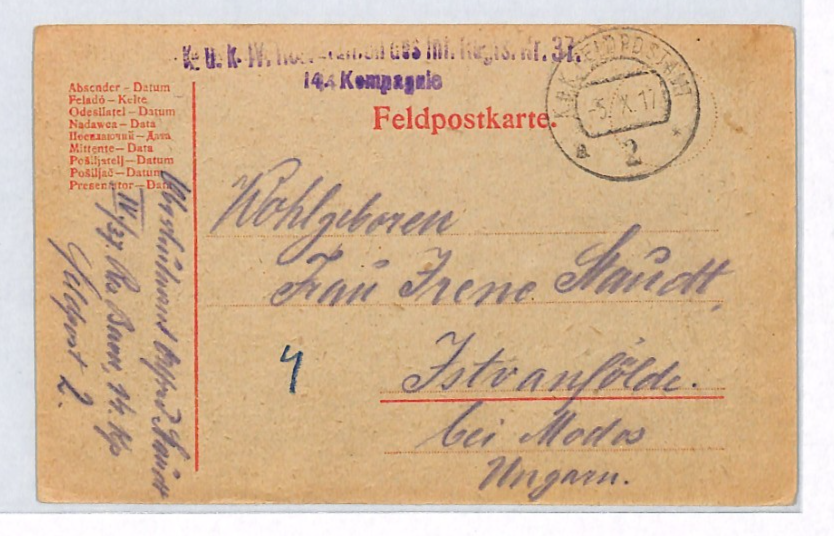 K. u. k. IV. des Inf. Regts. Nr. 37.
14. Kompagnie
K.u.K. FELDPOSTAMT
-5. X. 17
a 2 *
Feldpostkarte.
Absender – Datum
Feladó – Kelte
Odesílatel – Datum
Nadawca – Data
Mittente – Data
Pošiljatelj – Datum
Pošiljač – Datum
Presentator – Data
Alfred Staudt
IV/37. Baon, 14. Kp
Feldpost 2.
Wohlgeboren
Frau Irene Staudt,
Istvanfölde.
bei Modos
Ungarn.
4